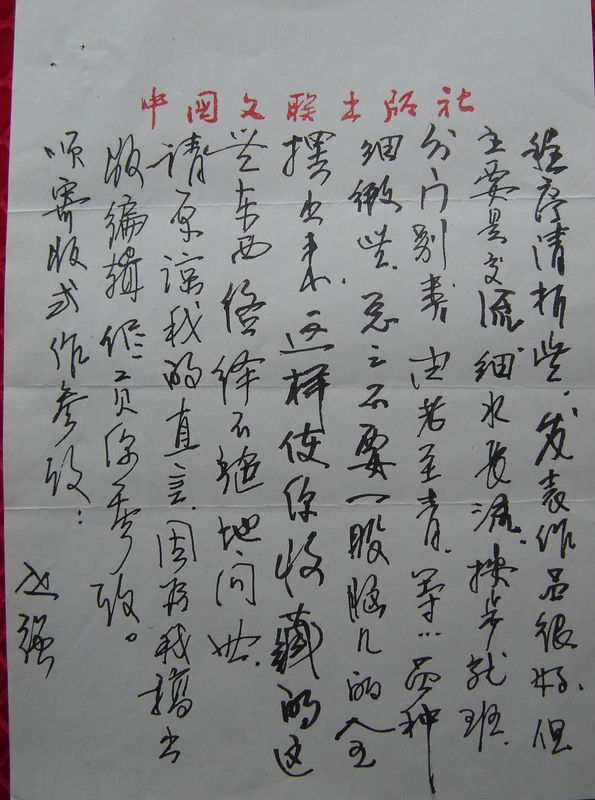 中国文联出版社
程序清析些，发表作品很好，但
主要是交流，细水长流，按步就班，
分门别类，由老至青，等…品种
细微些，总之不要一股脑儿的全
摆出来，这样使你收藏的这
些东西络绎不绝地问世，
请原谅我的直言，因为我搞出
版编辑 你参考。
顺寄版式作参考：
强